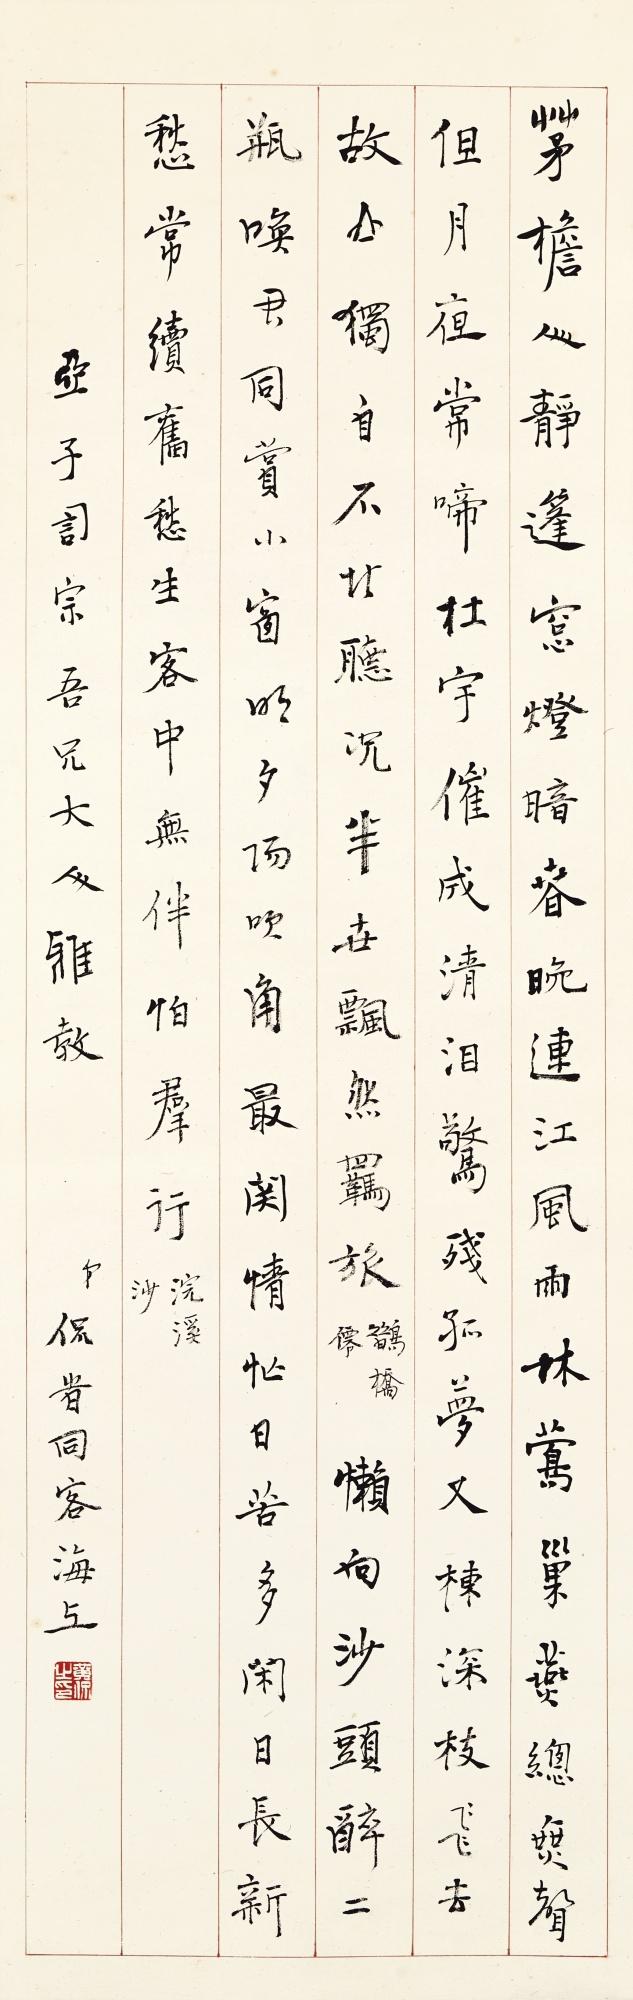 茅檐人靜蓬窓燈暗春晚連江風雨林鶯巢燕總無聲
但月夜常啼杜宇催成清泪驚殘孤夢又揀深枝飛去
故山獨自不堪聽況半世飄然羈旅鵲橋僊懶向沙頭醉二
瓶喚君同賞小窗明夕陽吹角最関情忙日苦多閑日長新
愁常續舊愁生客中無伴怕羣行浣溪沙
亞子詞宗吾兄大人雅教 弟侃眘同客海上